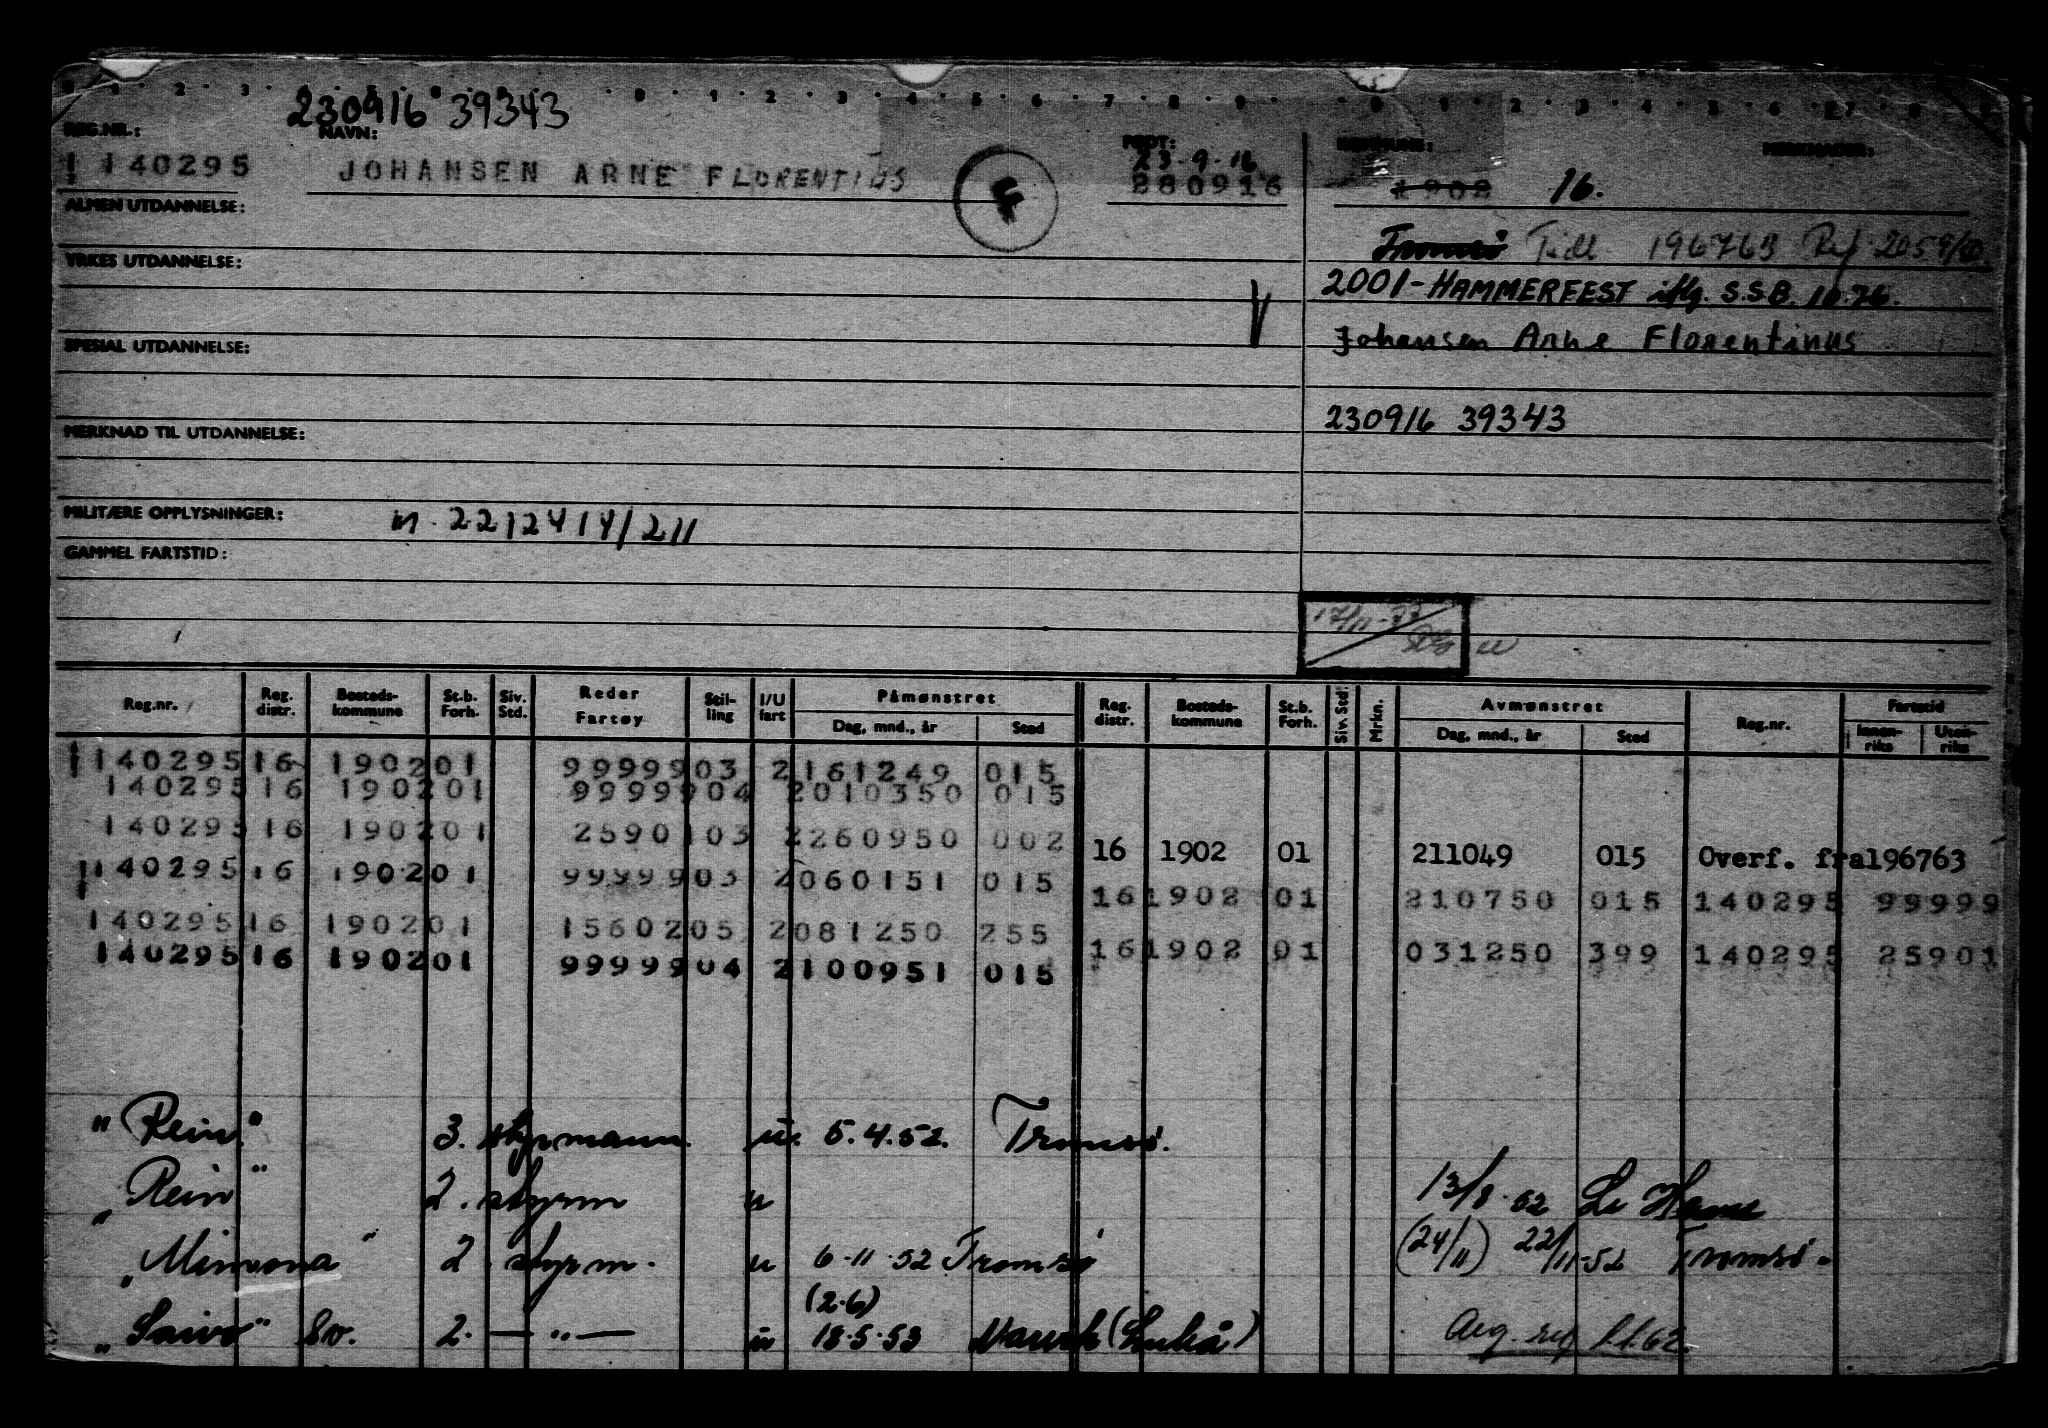 230916 39343
REG.NR.: NAVN: FØDT: KOMMUNE: MERKNADER:
23-9-16
140295 JOHANSEN ARNE FLORENTIUS F 280916 1902 16.
ALMEN UTDANNELSE:
Tromsø Tidl 196763 Ref.
YRKES UTDANNELSE:
2001-HAMMERFEST iflg. S.S.B. 10.76.
Johansen Arne Florentinus
SPESIAL UTDANNELSE:
230916 39343
MERKNAD TIL UTDANNELSE:
MILITÆRE OPPLYSNINGER: m. 2212414/211
GAMMEL FARTSTID:
17/11-77
Reg.nr. Reg. distr. Bosteds-kommune St.b. Forh. Siv. Std. Reder Fartøy Stil-ling I/U fart Påmønstret Dag, mnd., år Sted Reg. distr. Bosteds-kommune St.b. Forh. Siv. Std. Mrkn. Avmønstret Dag, mnd., år Sted Reg.nr. Fartstid Innen-riks Uten-riks
140295 16 1902 01 99999 03 2 161249 015
140295 16 1902 01 99999 04 2 010350 015
140295 16 1902 01 25901 03 2 260950 002
16 1902 01 211049 015 Overf. fra196763
140295 16 1902 01 99999 03 2 060151 015
16 1902 01 210750 015 140295 99999
140295 16 1902 01 15602 05 2 081250 255
16 1902 01 031250 399 140295 25901
140295 16 1902 01 99999 04 2 100951 015
"Rein" 3. styrmann. u. 5.4.52. Tromsø.
"Rein" 2. styrm u 13/8.52 Le Havre
"Mimona" 2. styrm. u 6-11-52 Tromsø (24/11) 22/11-52 Tromsø.
(2.6)
"Saivo" Sv. 2. — " — u 18.5.53 Narvik (Luleå)